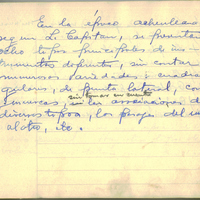 En la época acheuliana
según L. Capitan, se presentan
ocho tipos principales de ins
trumentos de punta, sin contar
numerosas variedades: cuadran
gulares, de punta lateral, con
muescas,
sin tomar en cuenta
las asociaciones de
diversos tipos, los pasajes del uno
al otro, etc.